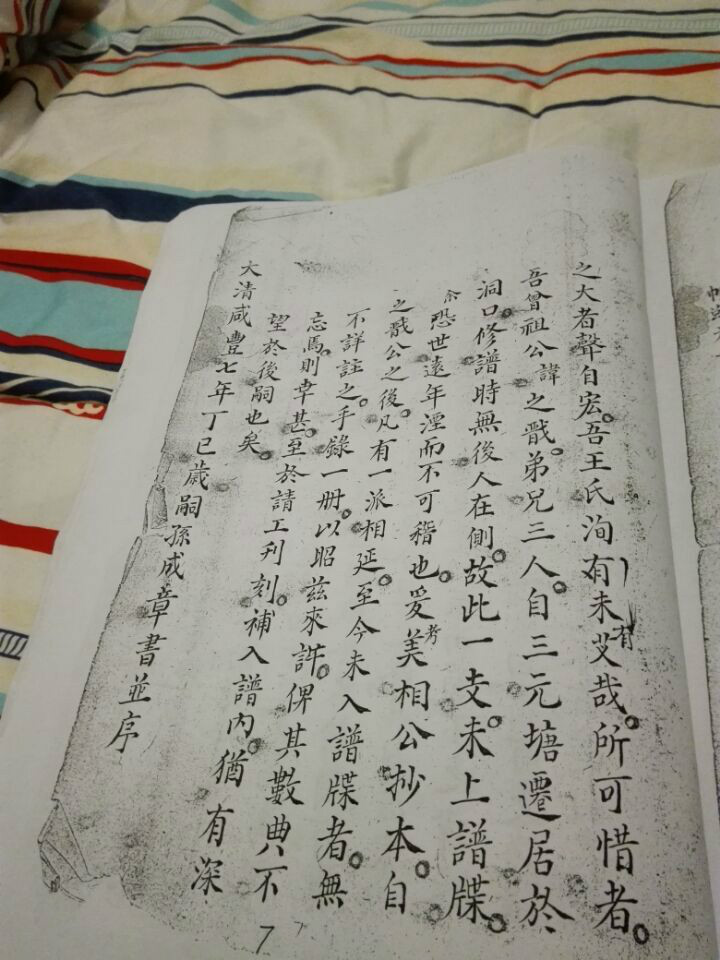 之大者聲自宏。吾王氏洵有未艾哉。所可惜者。
有
吾曾祖公諱之戩。弟兄三人。自三元塘遷居於
洞口。修譜時無後人在側。故此一支未上譜牒。
余恐世遠年湮而不可稽也。爰考美相公抄本。自
之戩公之後。凡有一派相延。至今未入譜牒者。無
不詳註之。手錄一册。以昭茲來許。俾其數典不
忘焉。則幸甚。至於請工刋刻。補入譜内。猶有深
望於後嗣也矣。
大清咸豐七年丁巳歲嗣孫成章書並序
7